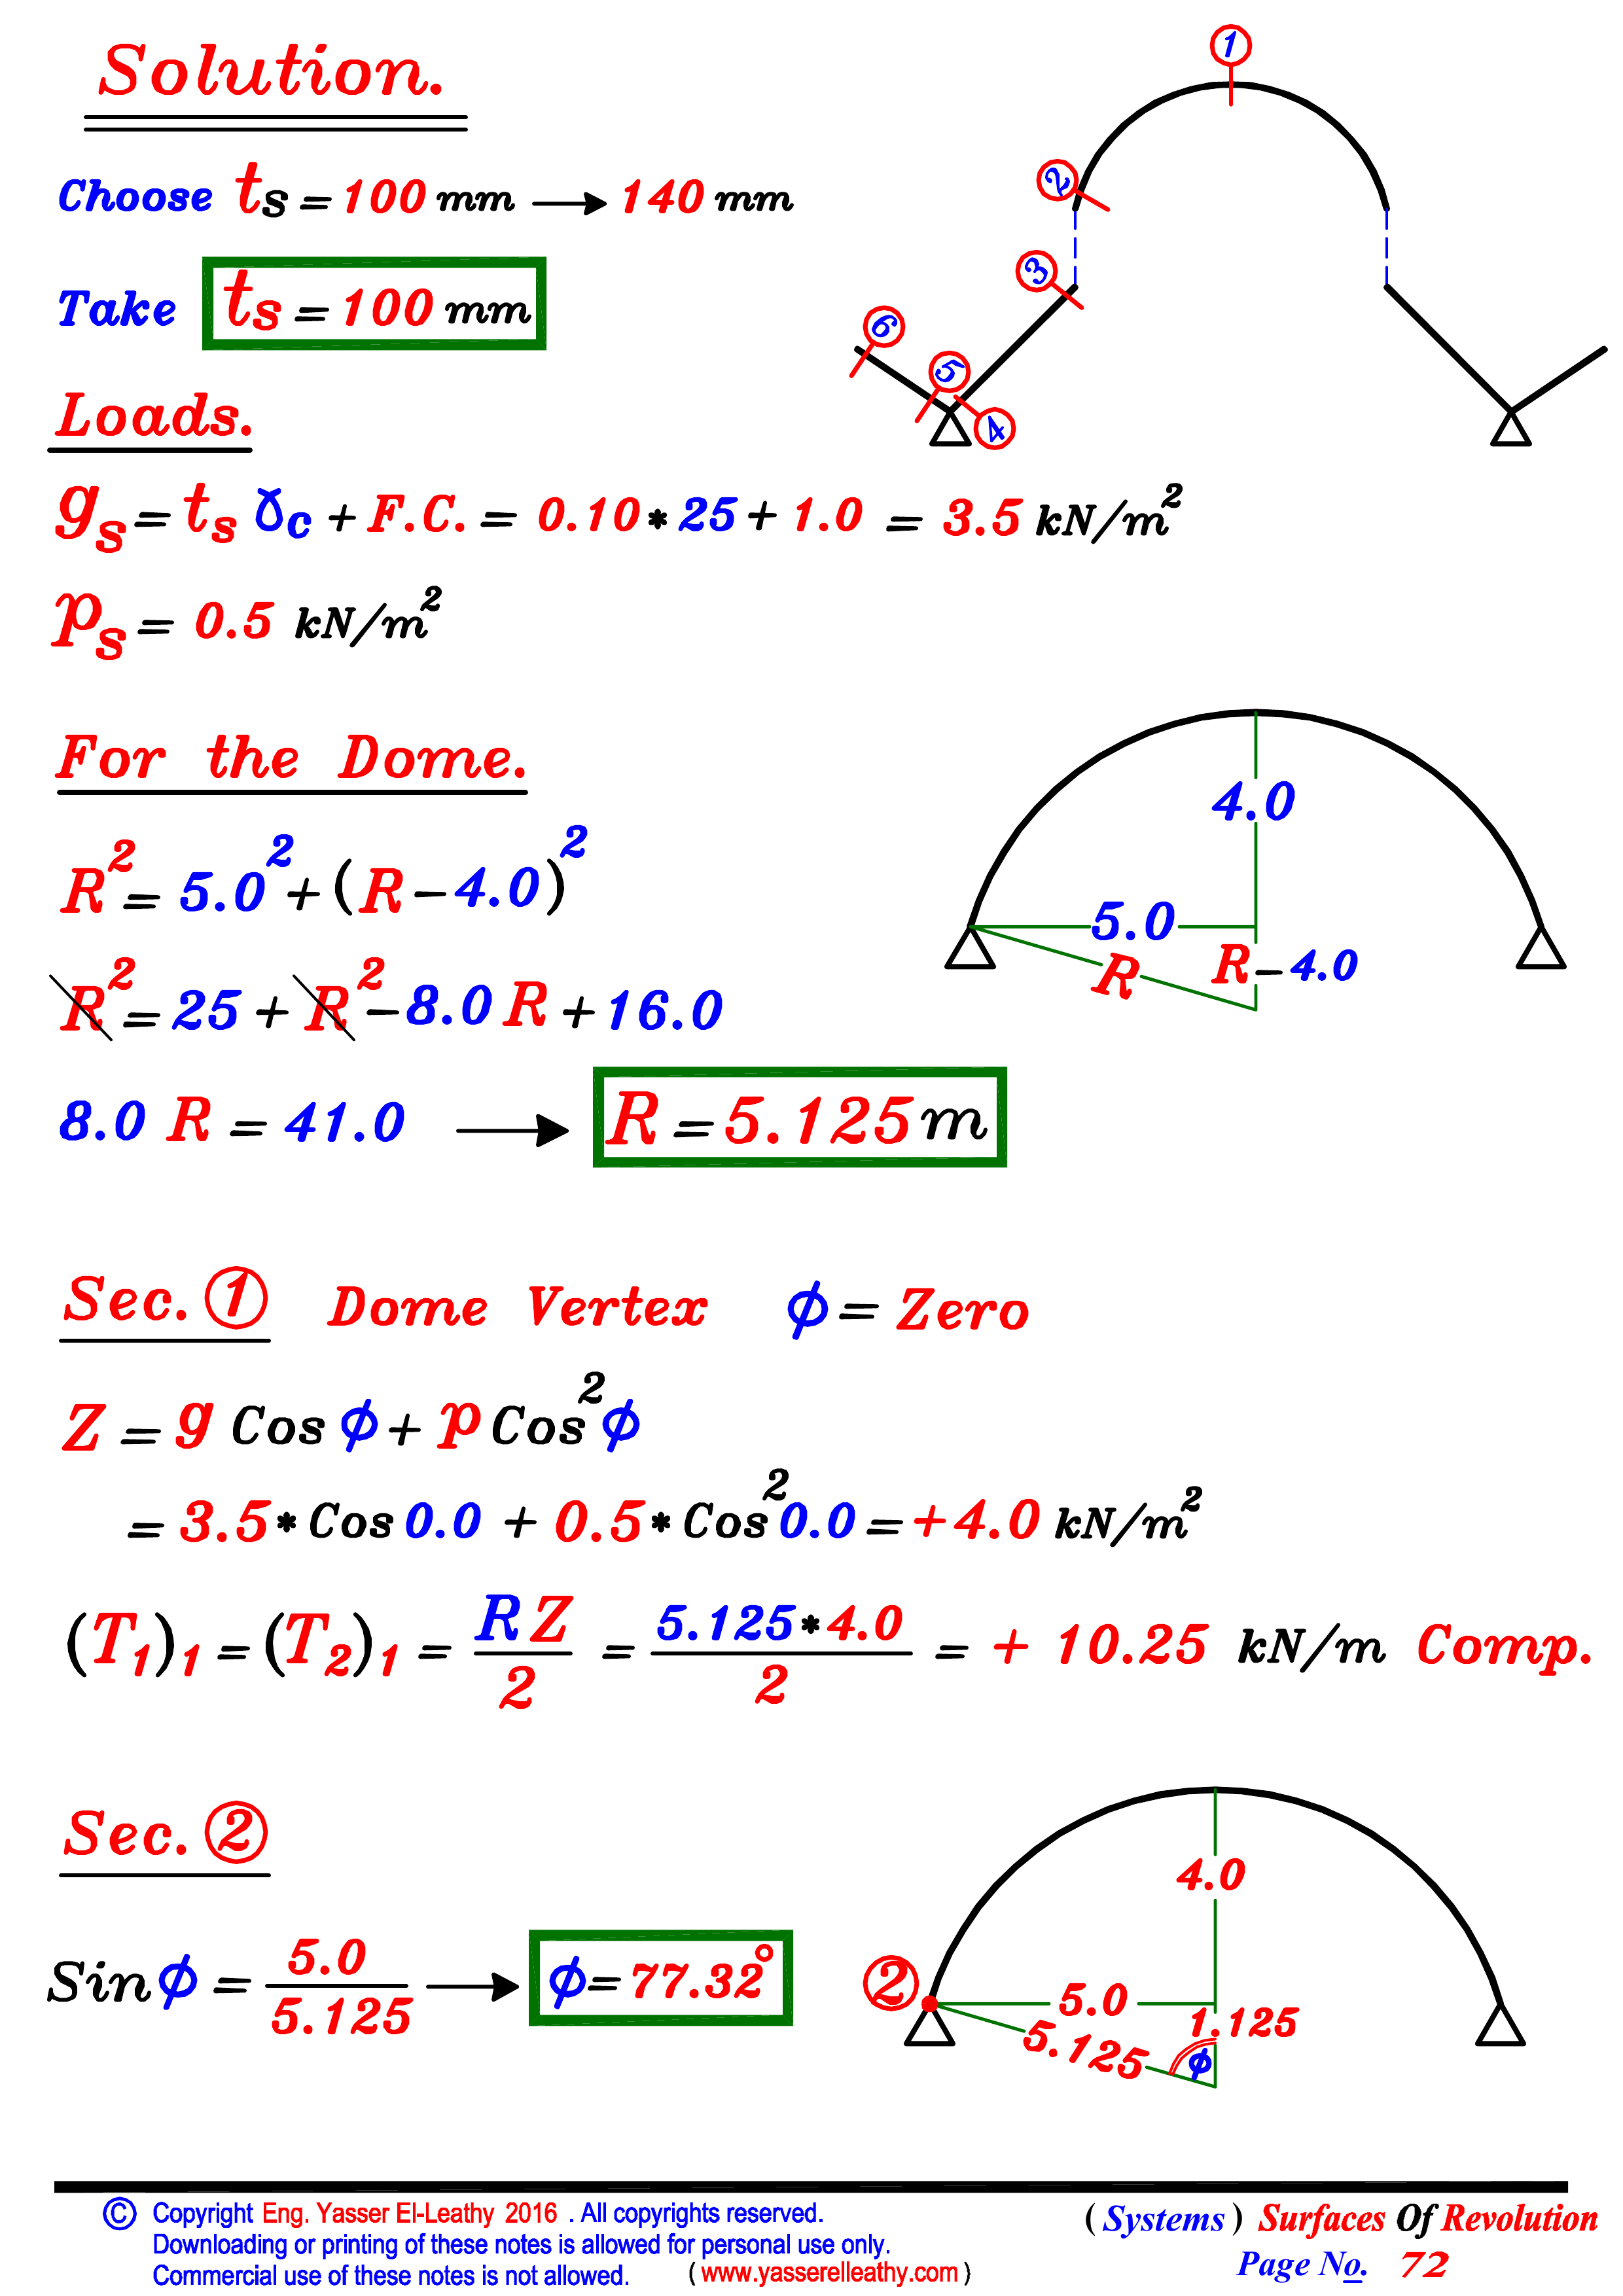 Solution.
1
Choose ts = 100 mm → 140 mm
2
Take ts = 100 mm
3
6
5
4
Loads.
gs = ts γc + F.C. = 0.10 * 25 + 1.0 = 3.5 kN/m²
ps = 0.5 kN/m²
For the Dome.
4.0
R² = 5.0² + (R - 4.0)²
5.0
R
R - 4.0
R² = 25 + R² - 8.0 R + 16.0
8.0 R = 41.0 → R = 5.125 m
Sec. 1 Dome Vertex ϕ = Zero
Z = g Cos ϕ + p Cos² ϕ
= 3.5 * Cos 0.0 + 0.5 * Cos² 0.0 = +4.0 kN/m²
(T1)1 = (T2)1 = R Z / 2 = 5.125 * 4.0 / 2 = + 10.25 kN/m Comp.
Sec. 2
4.0
Sin ϕ = 5.0 / 5.125 → ϕ = 77.32°
2
5.0
1.125
5.125
ϕ
© Copyright Eng. Yasser El-Leathy 2016 . All copyrights reserved.
Downloading or printing of these notes is allowed for personal use only.
Commercial use of these notes is not allowed. ( www.yasserelleathy.com )
( Systems ) Surfaces Of Revolution
Page No. 72